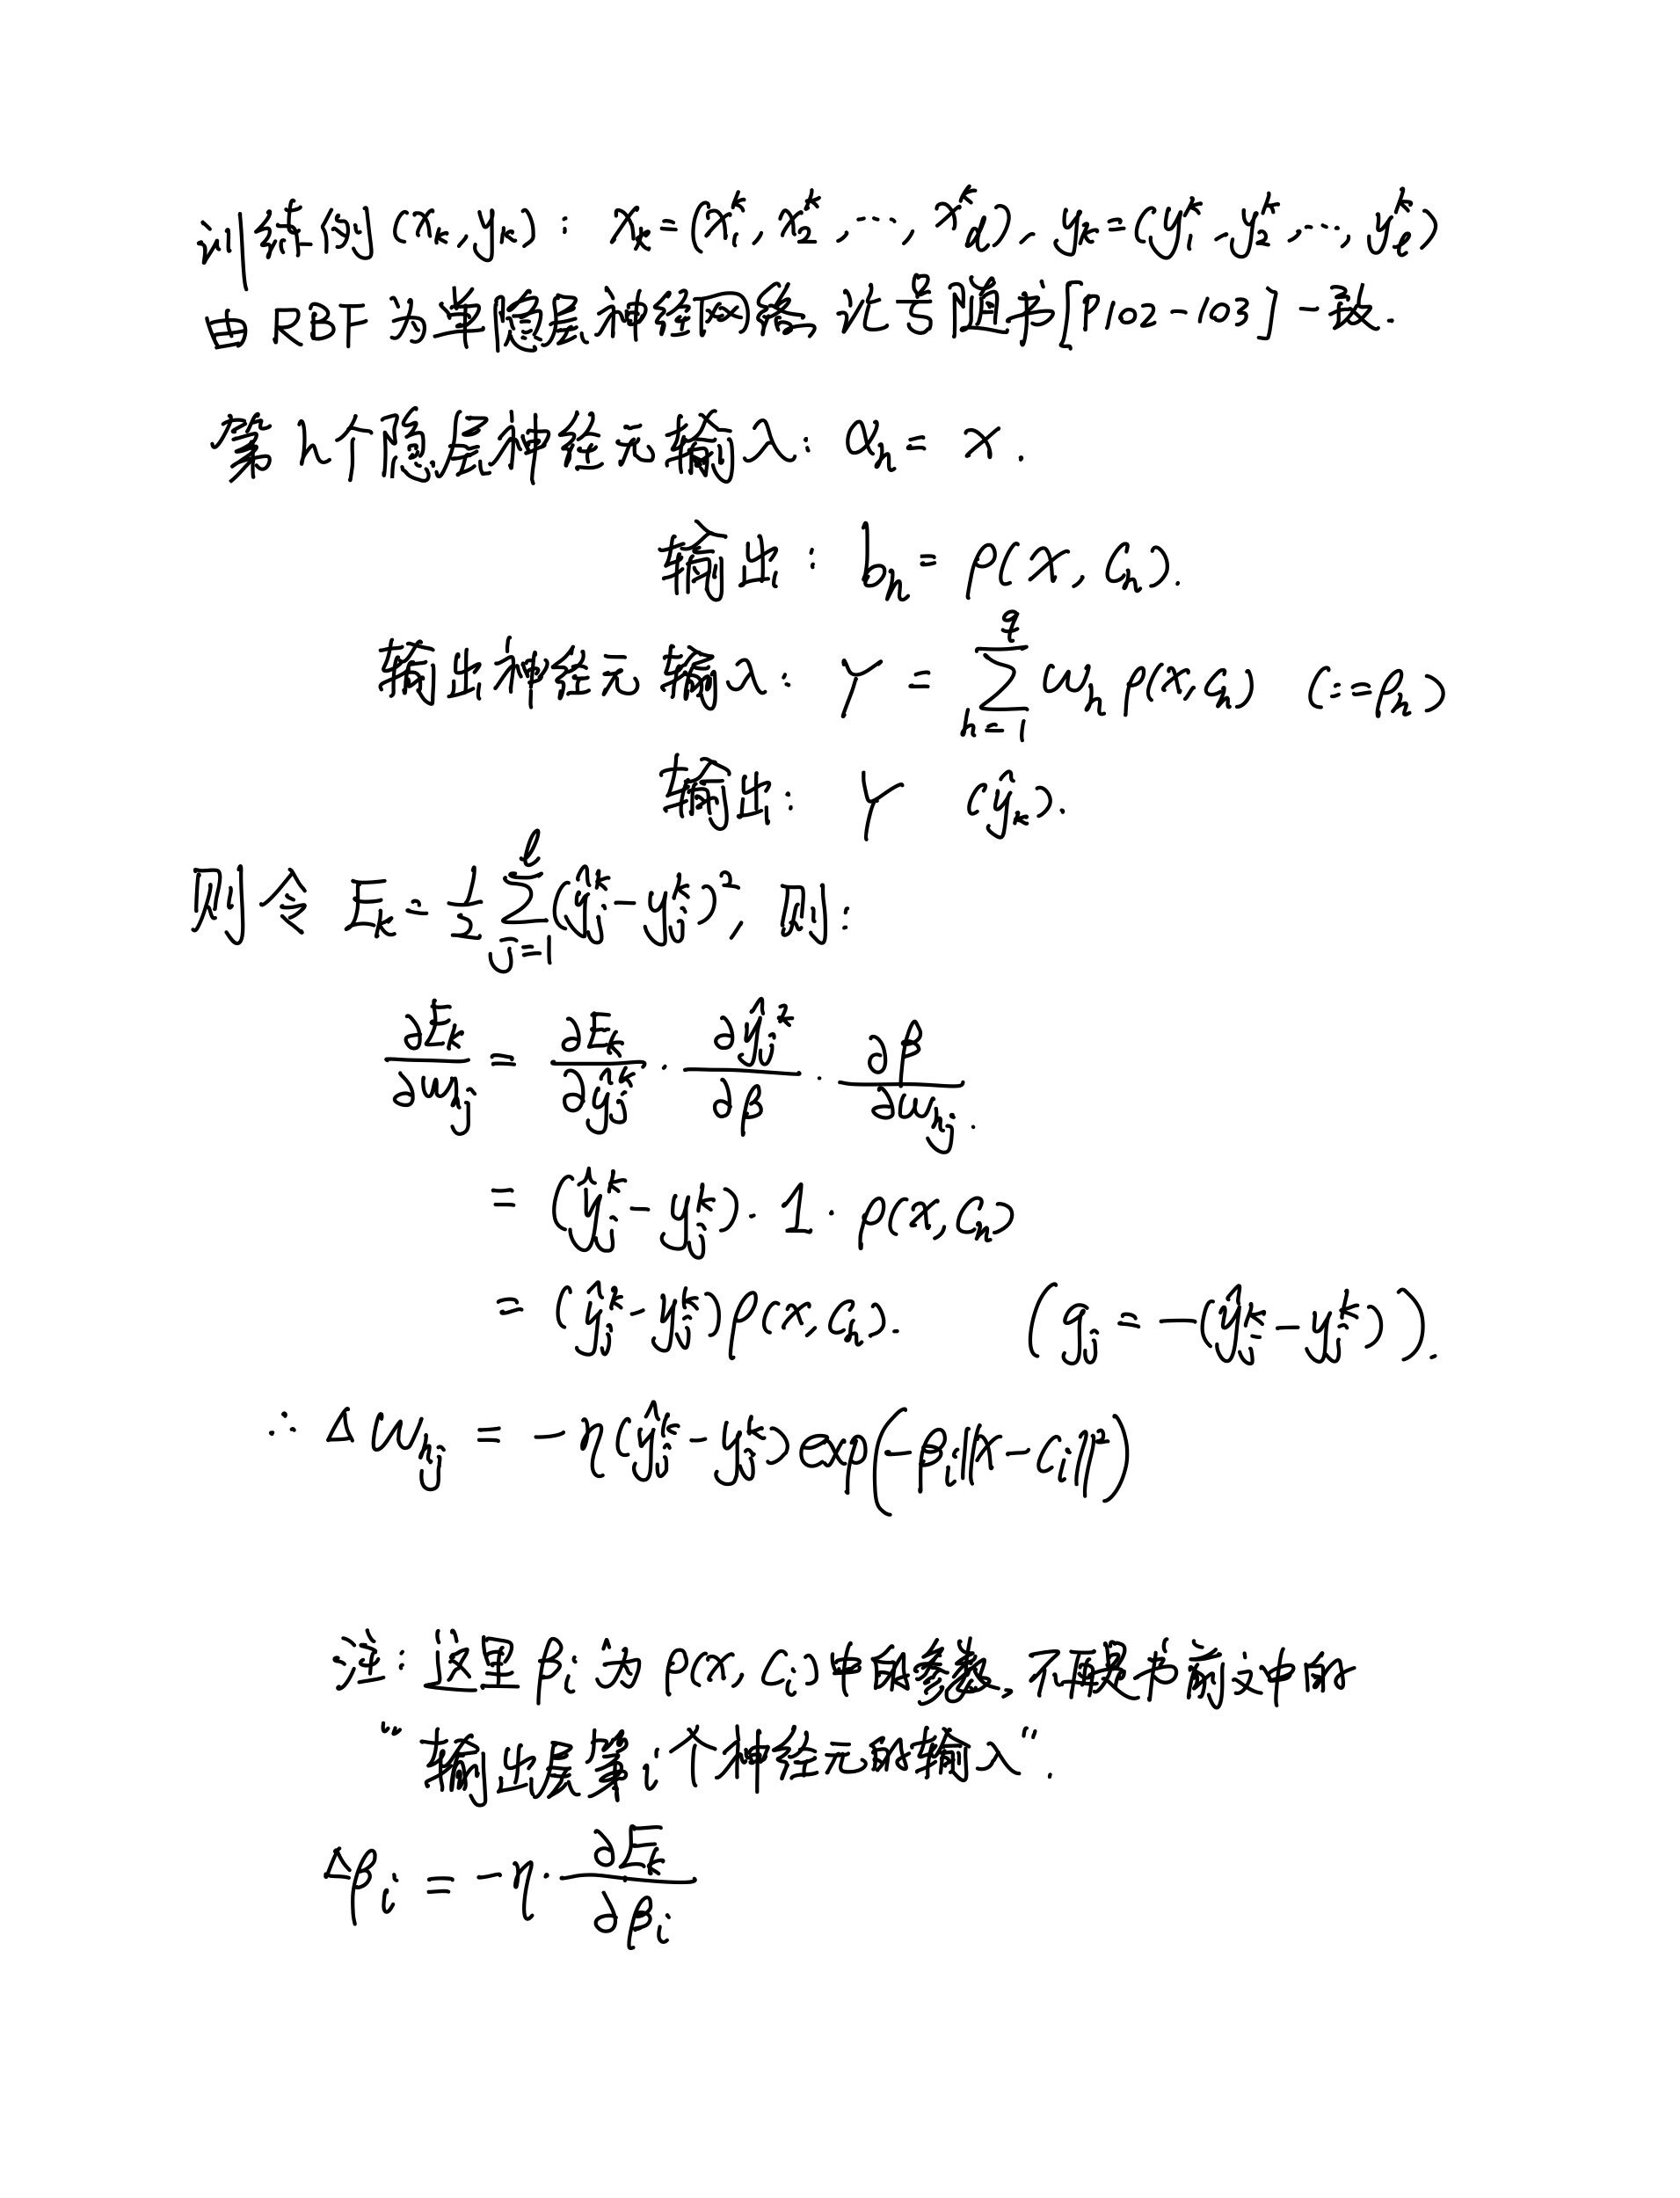 训练例 (x_k, y_k) : x_k = (x_1^k, x_2^k, ..., x_d^k), y_k = (y_1^k, y_2^k, ..., y_l^k)
由 RBF 为单隐层神经网络, 记号随书[P102-103]一致.
第 h 个隐层神经元输入: α_h = x .
输出: b_h = ρ(x, c_h).
输出神经元输入: Y = ∑_{h=1}^{q} w_h ρ(x, c_h) (:=β_h)
输出: Y (ŷ_k).
则令 E_k = 1/2 ∑_{j=1}^{l} (ŷ_j^k - y_j^k)², 则:
∂E_k/∂w_{hj} = ∂E_k/∂ŷ_j^k · ∂ŷ_j^k/∂β · ∂β/∂w_{hj} .
= (ŷ_j^k - y_j^k) · 1 · ρ(x, c_h)
= (ŷ_j^k - y_j^k) ρ(x, c_h). (g_j = -(ŷ_j^k - y_j^k)).
∴ Δw_{hj} = -η(ŷ_j^k - y_j^k) exp(-β_i‖x - c_i‖²)
注: 这里 β_i 为 ρ(x, c_i) 中的参数, 不再是书前文中的
“输出层第 i 个神经元的输入”.
Δβ_i = -η · ∂E_k/∂β_i